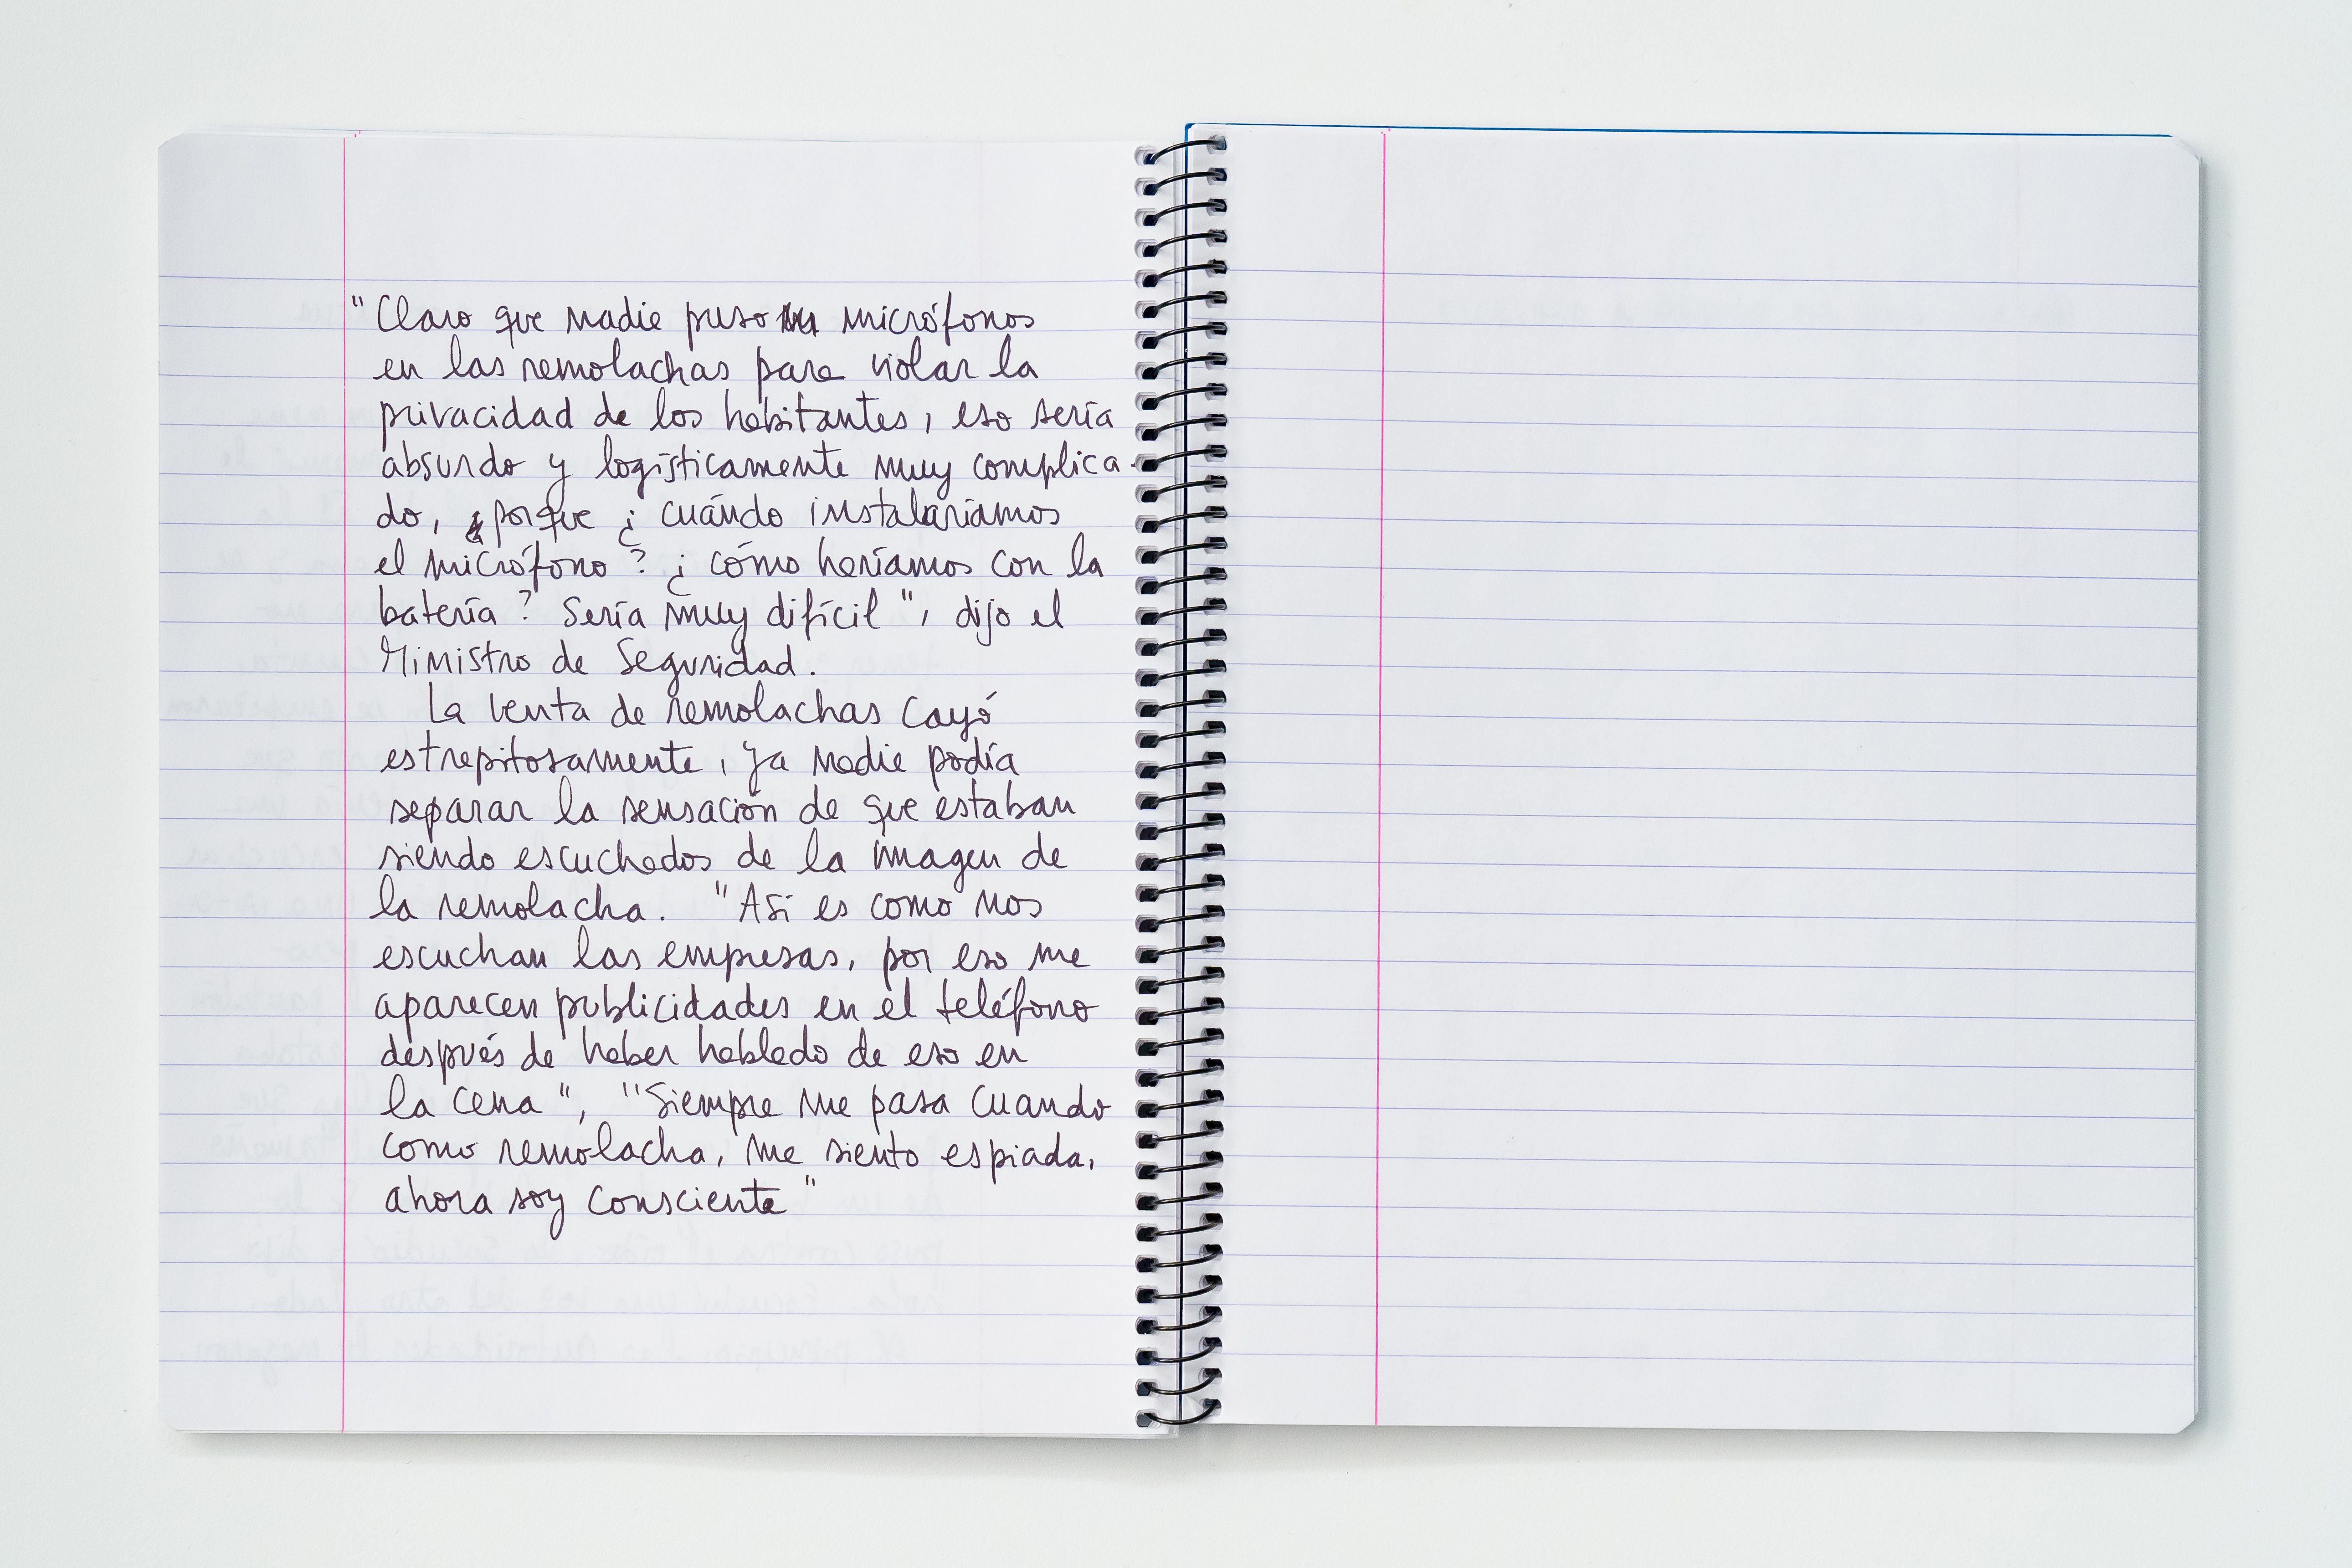 "Claro que nadie puso micrófonos
en las remolachas para violar la
privacidad de los habitantes, eso sería
absurdo y logísticamente muy complica-
do, porque ¿cuándo instalaríamos
el micrófono? ¿cómo haríamos con la
batería? Sería muy difícil", dijo el
Ministro de Seguridad.
La venta de remolachas cayó
estrepitosamente, ya nadie podía
separar la sensación de que estaban
siendo escuchados de la imagen de
la remolacha. "Así es como nos
escuchan las empresas, por eso me
aparecen publicidades en el teléfono
después de haber hablado de eso en
la cena", "Siempre me pasa cuando
como remolacha, me siento espiada,
ahora soy consciente"